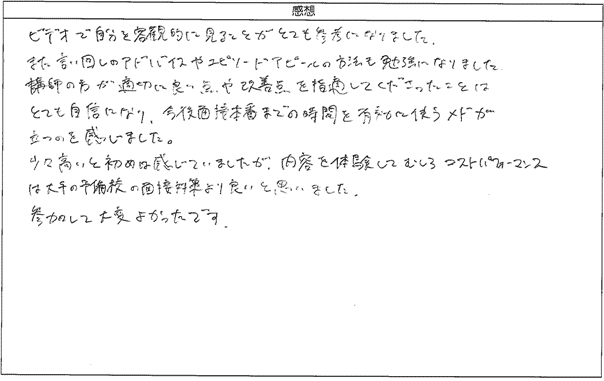 感想
ビデオで自分を客観的に見ることがとても参考になりました。
また言い回しのアドバイスやエピソードアピールの方法も勉強になりました
講師の方が適切に良い点や改善点を指摘してくださったことは
とても自信になり、今後面接本番までの時間を有効に使うメドが
立つのを感じました。
少々高いと初めは感じていましたが、内容を体験してむしろコストパフォーマンス
は大手の予備校の面接対策より良いと思いました。
参加して大変よかったです。